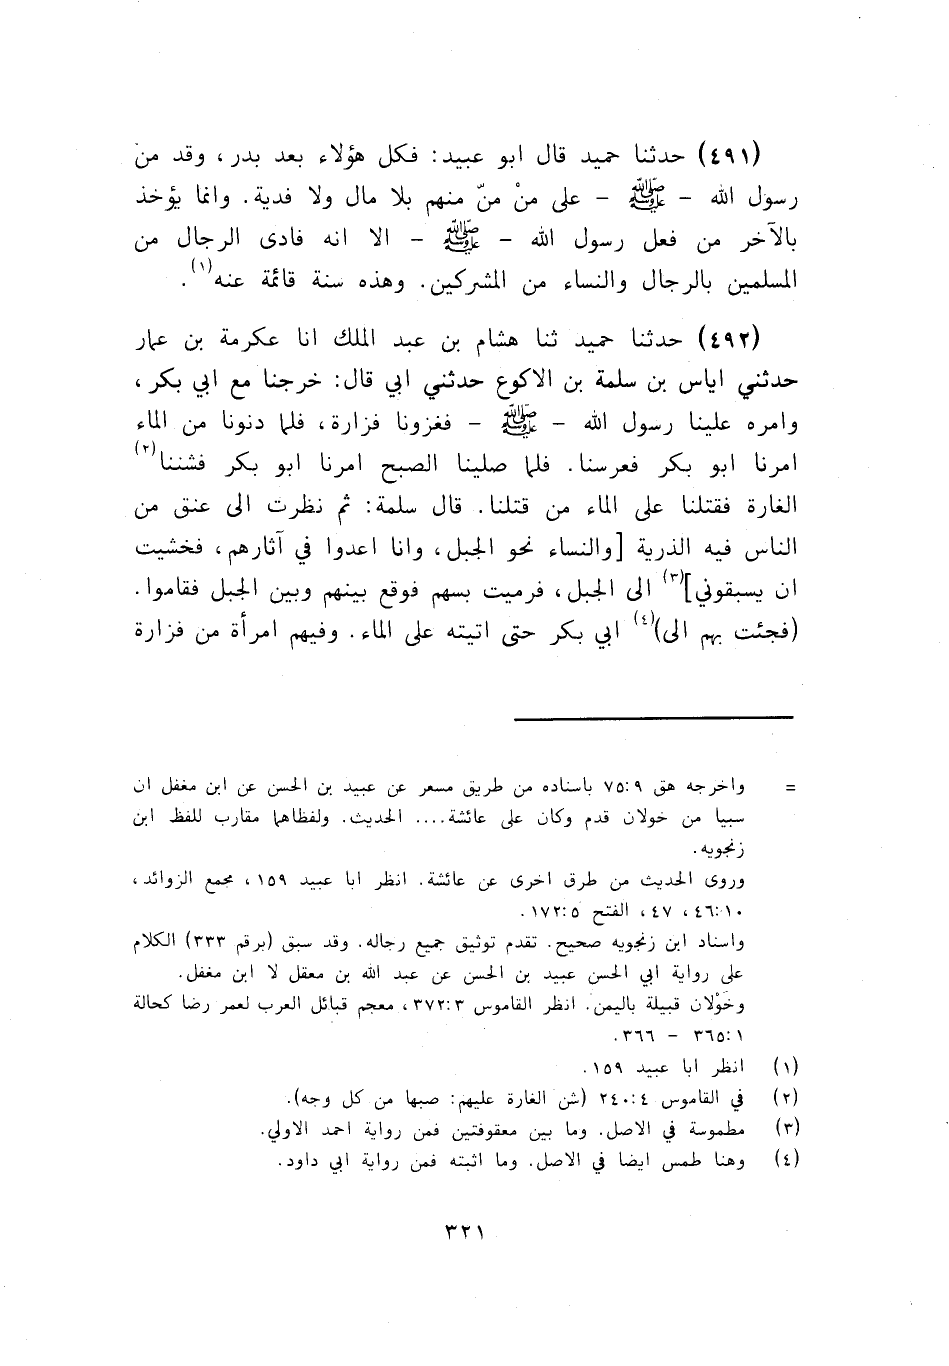 (٤٩١) حدثنا حميد قال ابو عبيد: فكل هؤلاء بعد بدر، وقد من
رسول الله - ﷺ - على منْ منّ منهم بلا مال ولا فدية. وانما يؤخذ
بالآخر من فعل رسول الله - ﷺ - الا انه فادى الرجال من
المسلمين بالرجال والنساء من المشركين. وهذه سنة قائمة عنه(١).
(٤٩٢) حدثنا حميد ثنا هشام بن عبد الملك انا عكرمة بن عمار
حدثني اياس بن سلمة بن الاكوع حدثني ابي قال: خرجنا مع ابي بكر،
وامره علينا رسول الله - ﷺ - فغزونا فزارة، فلما دنونا من الماء
امرنا ابو بكر فعرسنا. فلما صلينا الصبح امرنا ابو بكر فشننا(٢)
الغارة فقتلنا على الماء من قتلنا. قال سلمة: ثم نظرت الى عنق من
الناس فيه الذرية [والنساء نحو الجبل، وانا اعدوا في آثارهم، فخشيت
ان يسبقوني](٣) الى الجبل، فرميت بسهم فوقع بينهم وبين الجبل فقاموا.
(فجئت بهم الى)(٤) ابي بكر حتى اتيته على الماء. وفيهم امرأة من فزارة
= واخرجه هق ٧٥:٩ باسناده من طريق مسعر عن عبيد بن الحسن عن ابن مغفل ان
سبيا من خولان قدم وكان على عائشة.... الحديث. ولفظاهما مقارب للفظ ابن
زنجويه.
وروى الحديث من طرق اخرى عن عائشة. انظر ابا عبيد ١٥٩، مجمع الزوائد،
٤٦:١٠، ٤٧، الفتح ١٧٢:٥.
واسناد ابن زنجويه صحيح. تقدم توثيق جميع رجاله. وقد سبق (برقم ٣٣٣) الكلام
على رواية ابي الحسن عبيد بن الحسن عن عبد الله بن معقل لا ابن مغفل.
وخَوْلان قبيلة باليمن. انظر القاموس ٣٧٢:٣، معجم قبائل العرب لعمر رضا كحالة
٣٦٥:١ - ٣٦٦.
(١) انظر ابا عبيد ١٥٩.
(٢) في القاموس ٢٤٠:٤ (شن الغارة عليهم: صبها من كل وجه).
(٣) مطموسة في الاصل. وما بين معقوفتين فمن رواية احمد الاولي.
(٤) وهنا طمس ايضا في الاصل. وما اثبته فمن رواية ابي داود.
٣٢١